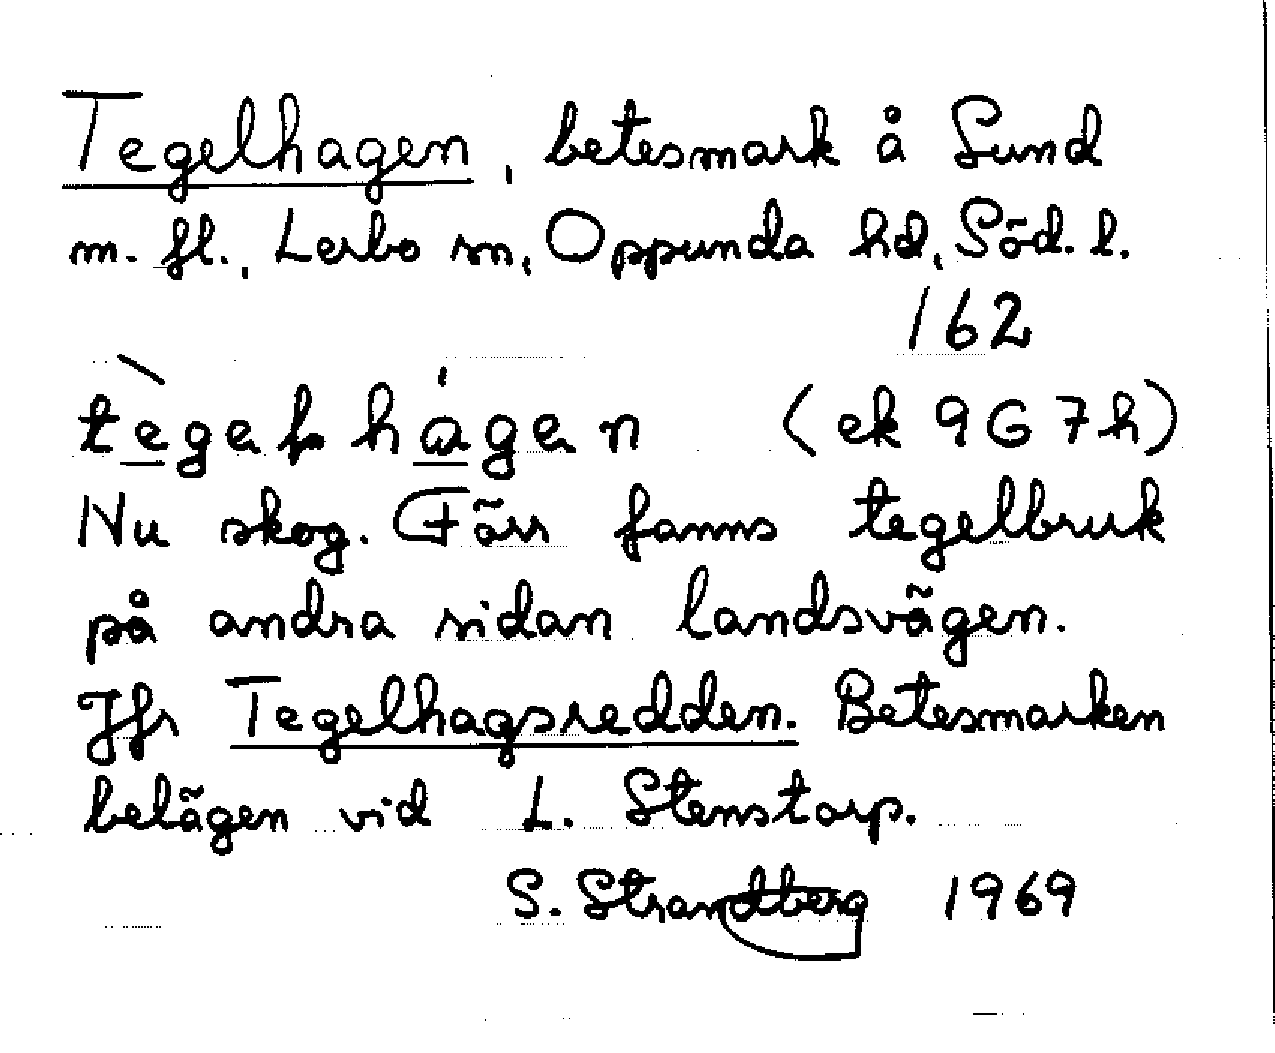 Tegelhagen, betesmark å Sund
m. fl., Lerbo sn, Oppunda hd, Söd. l.
162
tègəl hágən (ek 9G7h)
Nu skog. Förr fanns tegelbruk
på andra sidan landsvägen.
Jfr Tegelhagsredden. Betesmarken
belägen vid L. Stenstorp.
S. Strandberg 1969